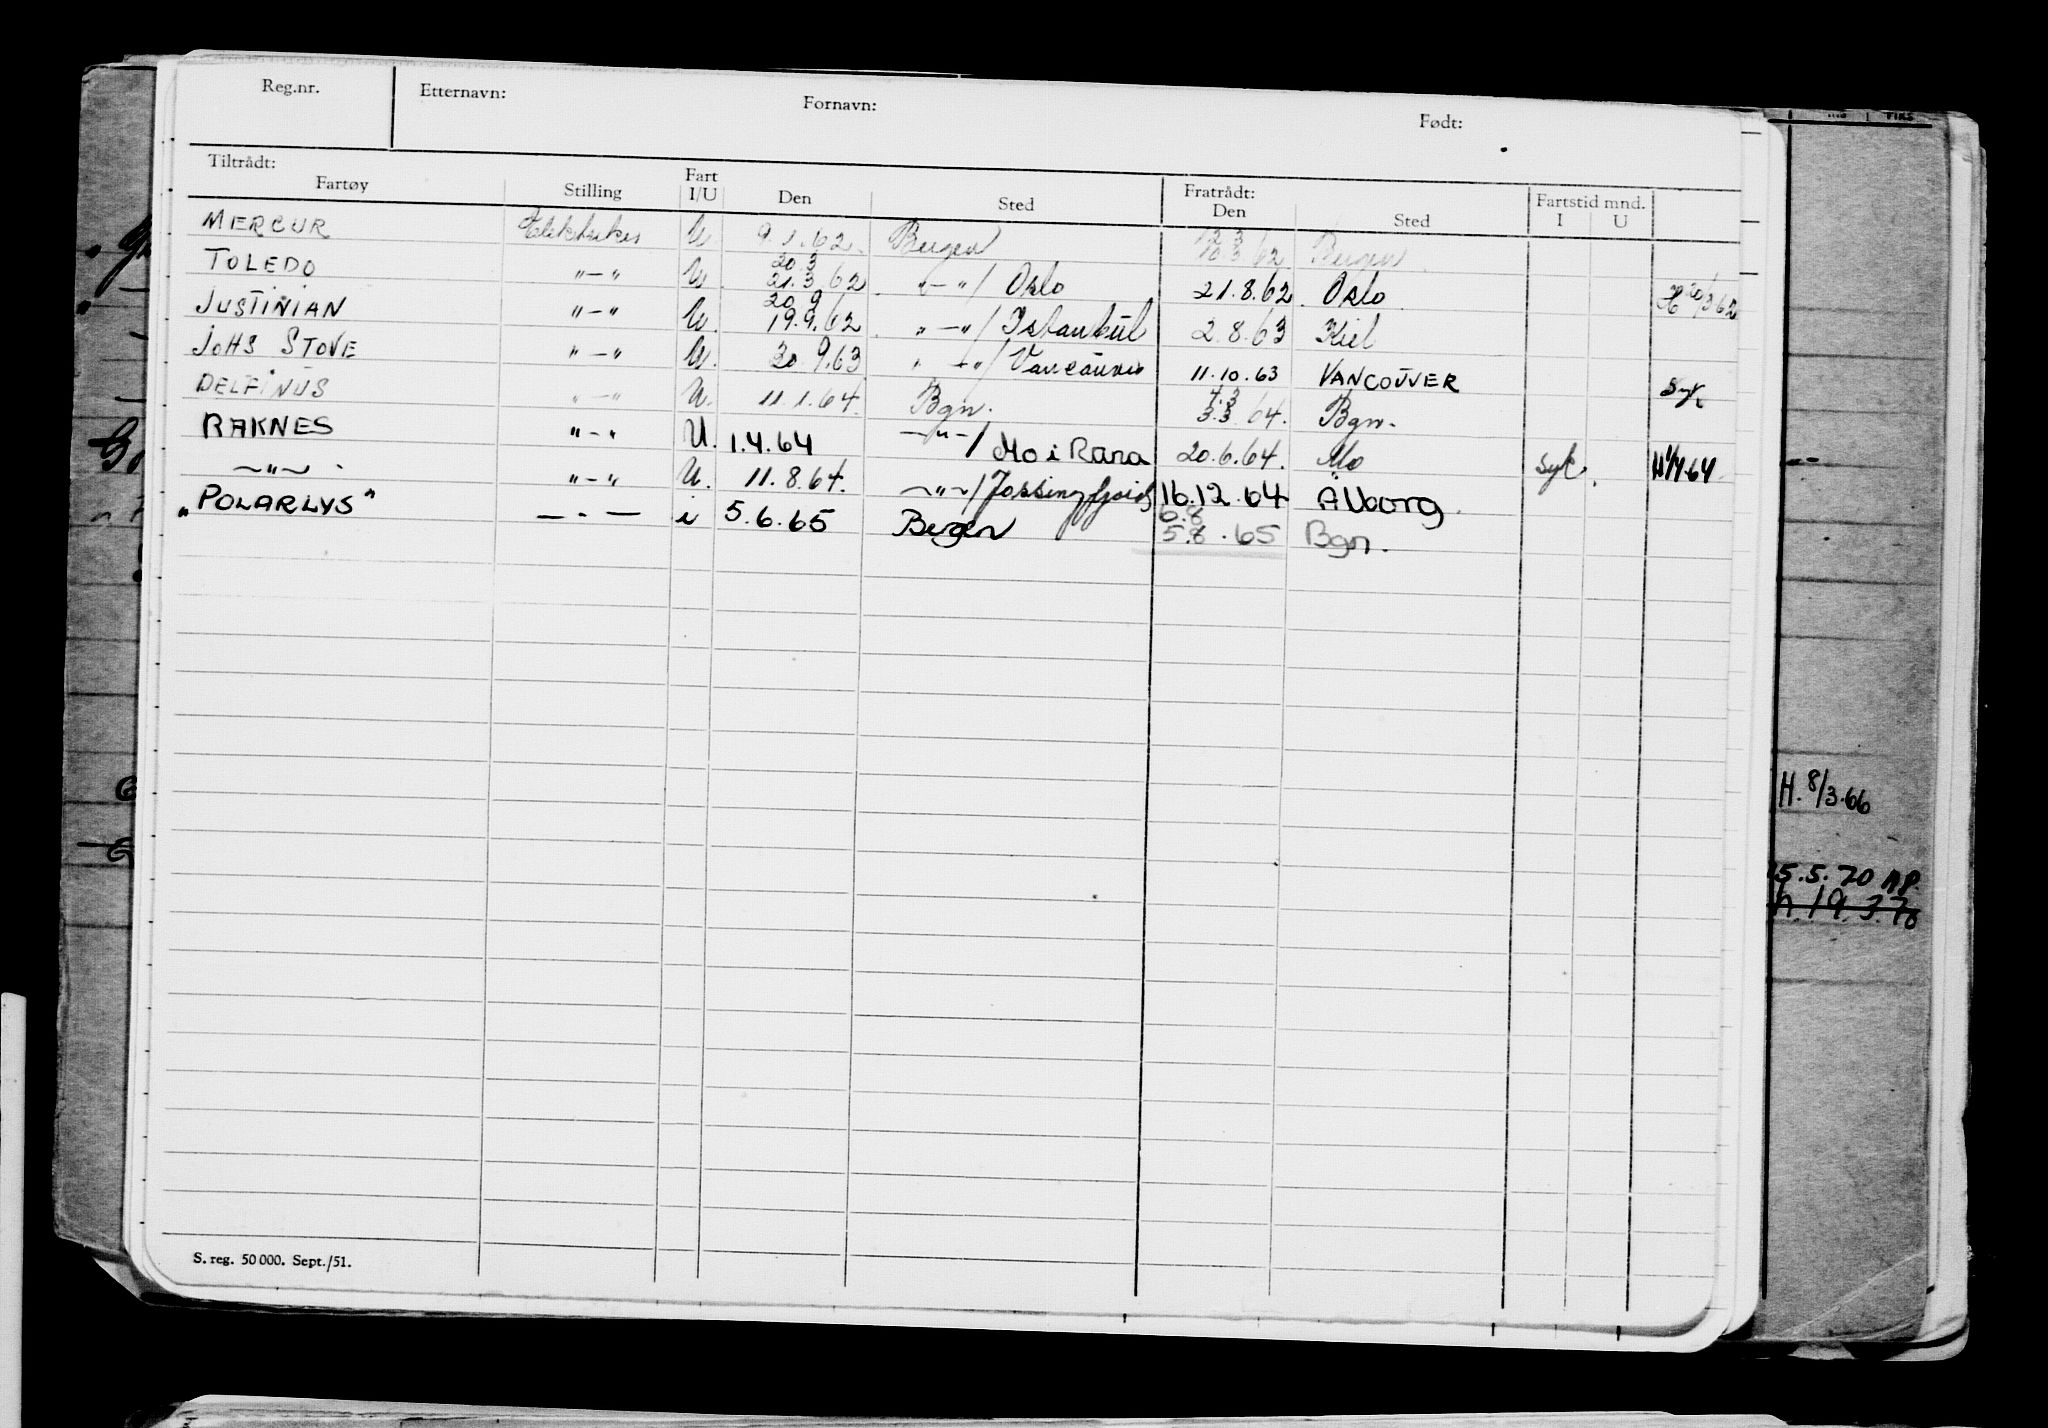 Reg.nr. Etternavn: Fornavn: Født:
Tiltrådt: Fratrådt: Fartstid mnd.
Fartøy Stilling Fart I/U Den Sted Den Sted I U
MERCUR Elektriker U. 9.1.62 Bergen 12.3 10.3.62 Bergen
TOLEDO "—" U 20.3 21.3.62 "—"/ Oslo 21.8.62 Oslo H 20/3 62
JUSTINIAN "—" U. 20.9 19.9.62 "—"/ Istanbul 2.8.63 Kiel
JOHS STOVE "—" U. 30.9.63 "—"/ Vancouver 11.10.63 VANCOUVER Syk
DELFINUS "—" U. 11.1.64. Bgn. 4.3 3.3.64. Bgn.
RAKNES "-" U. 1.4.64 —"—/ Mo i Rana 20.6.64. Mo syk. H 1/4 64
—"— "—" U. 11.8.64. —"—/ Jøssingfjord 16.12.64 Ålborg.
"POLARLYS" — - — i 5.6.65 Bergen 6.8 5.8.65 Bgn.
H. 8/3.66
15.5.70 AP.
h. 19.3.70
S. reg. 50 000. Sept./51.